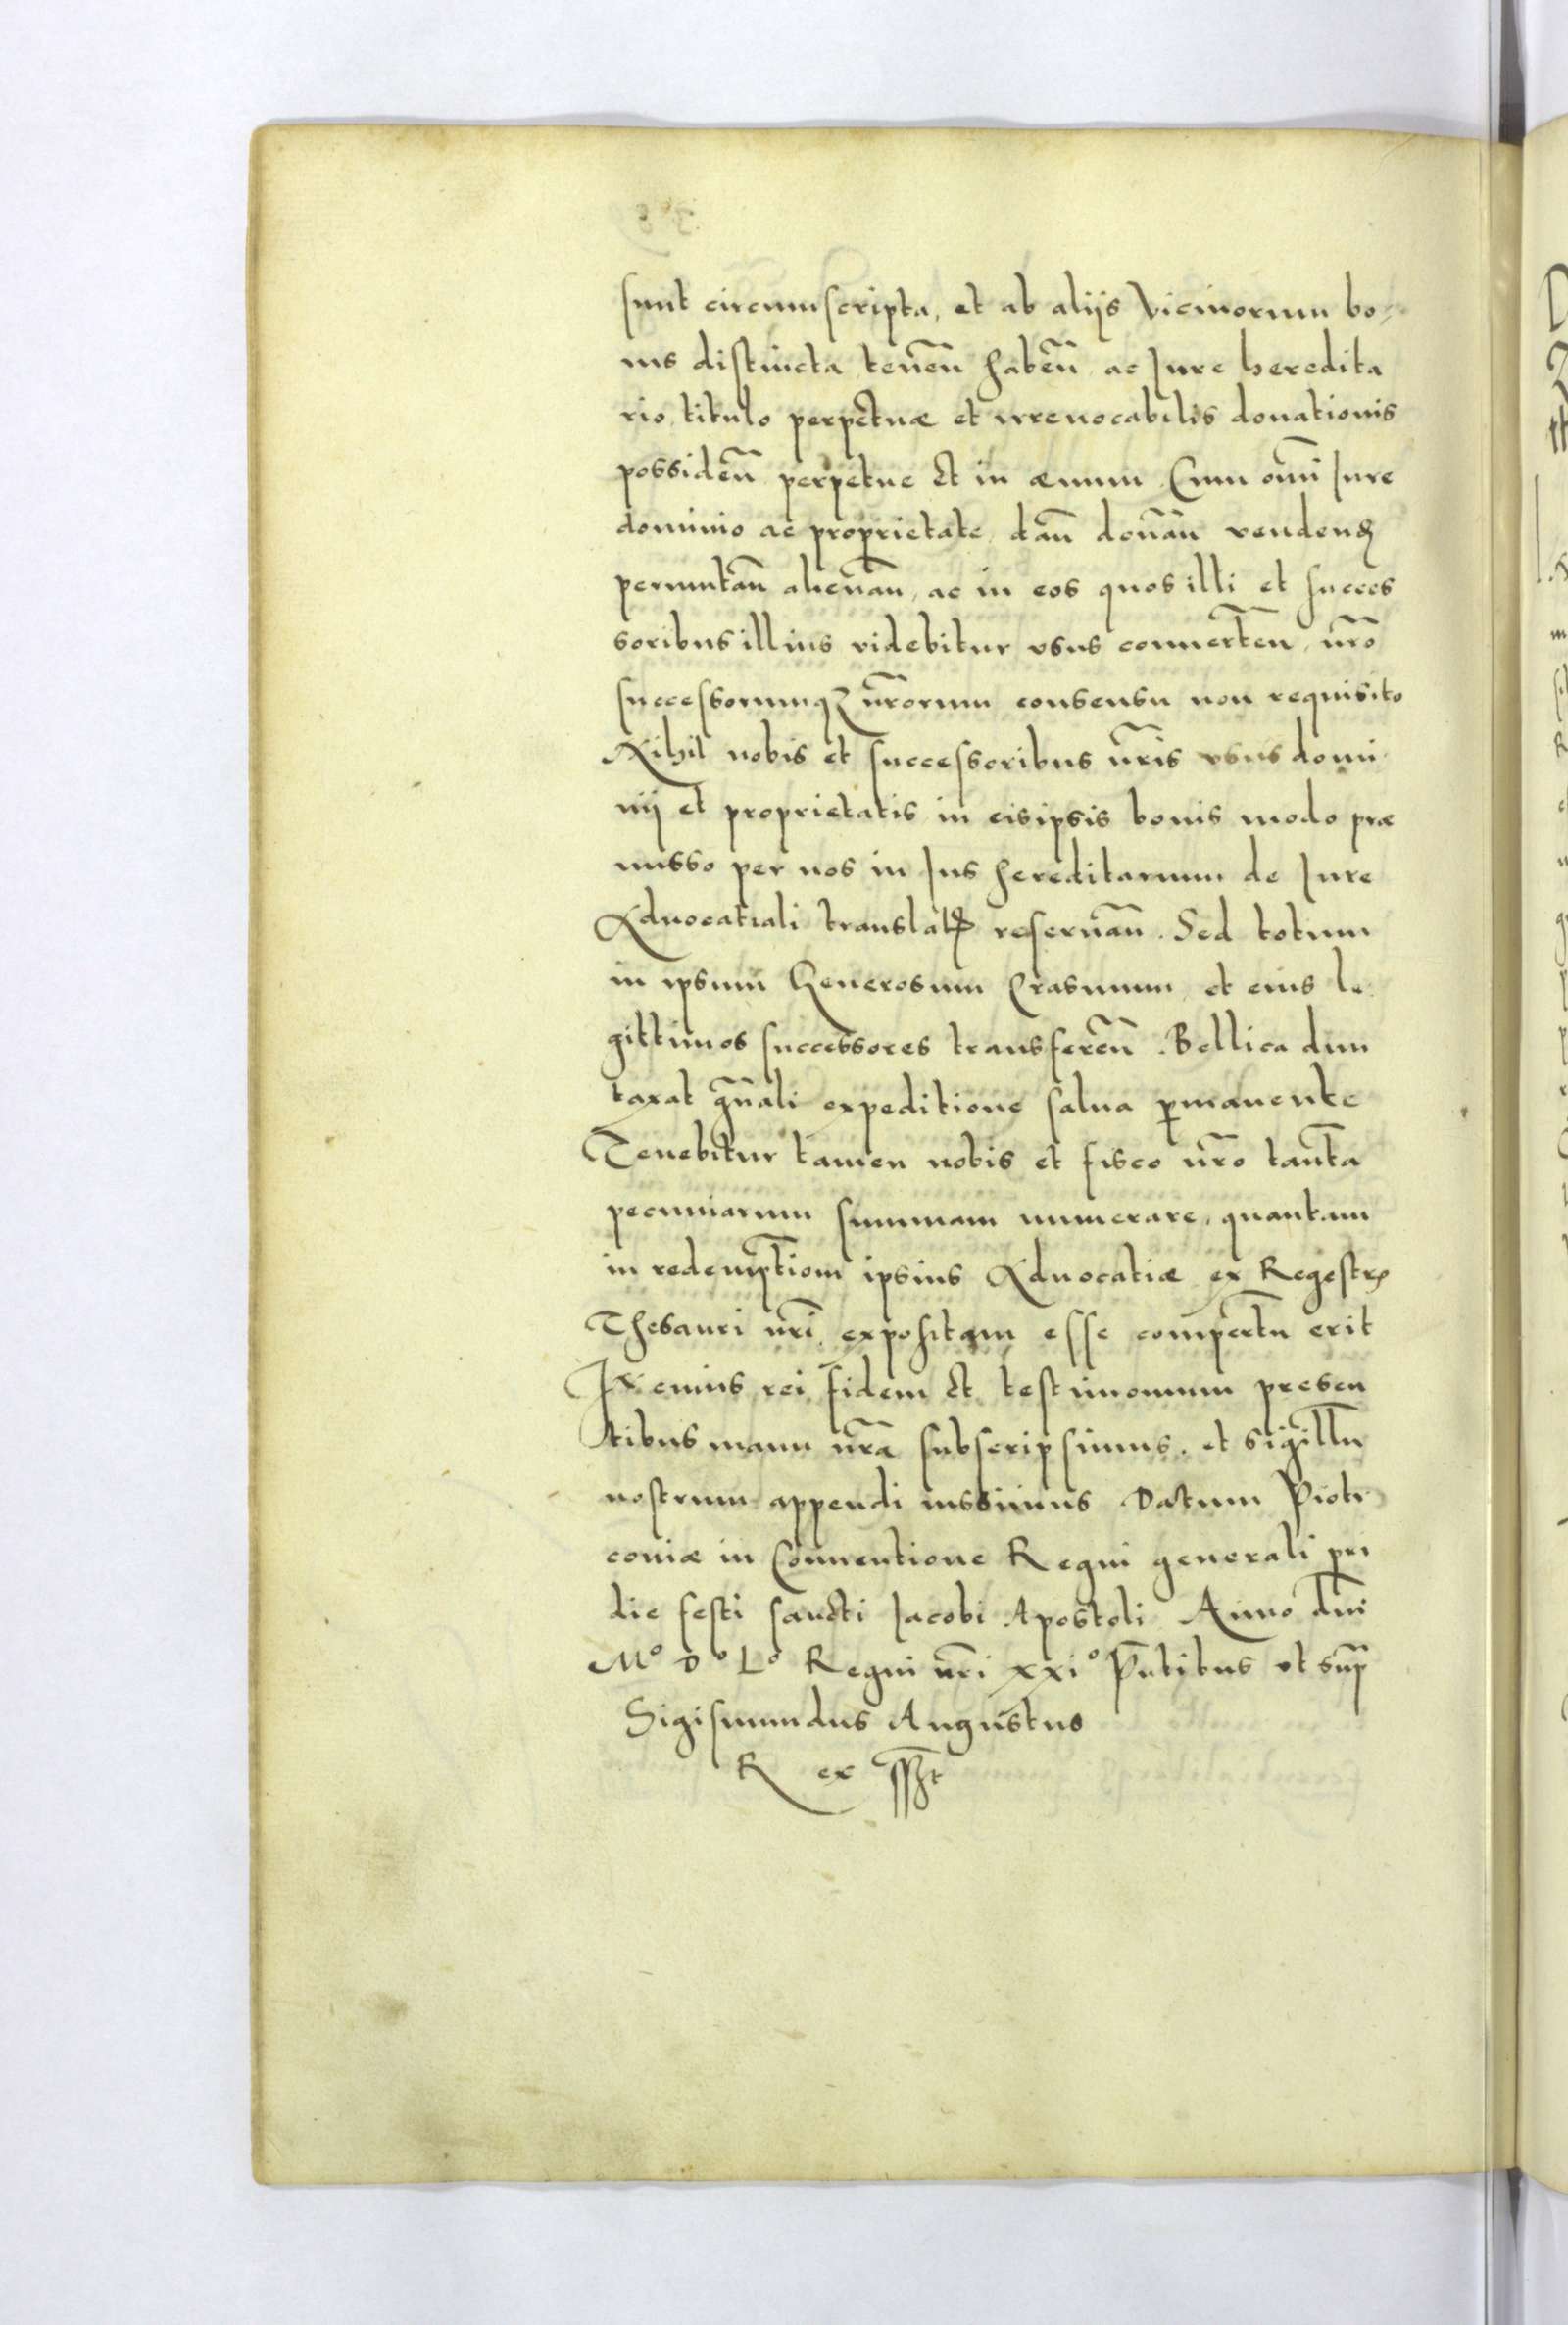 sunt circumscripta, et ab aliis vicinorum bo-
nis distincta teneñ habeñ ac Jure heredita
rio titulo perpetuæ et irrevocabilis donationis
possideñ perpetue et in ævum Cum om̃i Jure
dominio ac proprietate dañ donañ vendenḍ
permutañ alienañ, ac in eos quos illi et succes
soribus illius videbitur usus converteñ, nr̃o
successorumqʒ nr̃orum consensu non requisito
Nihil nobis et successoribus nr̃is usus domi
nij et proprietatis in eisipsis bonis modo præ
misso per nos in Jus hereditarium de Jure
Advocatiali translatꝭ reservañ. Sed totum
in ipsum Generosum Erasmum, et eius le
gittimos successores transfereñ. Bellica dun
taxat gñali expeditione salva ꝑmanente
Tenebitur tamen nobis et fisco nr̃o tantã
pecuniarum summam numerare, quantam
in redemptiom̃ ipsius Advocatiæ ex Regestrꝭ
Thesauri nr̃i expositam esse compertũ erit
In cuius rei fidem et testimonium presen
tibus manu nr̃a subscripsimus. et sigillũ
nostrum appendi iussimus Datum Piotr
coviæ in Conventione Regni generali pri
die festi sancti Jacobi Apostoli Anno dñi
Mº Dº Lº Regni nr̃i xxiº Pñtibus ut supͣ
Sigismundus Augustus
Rex sszt